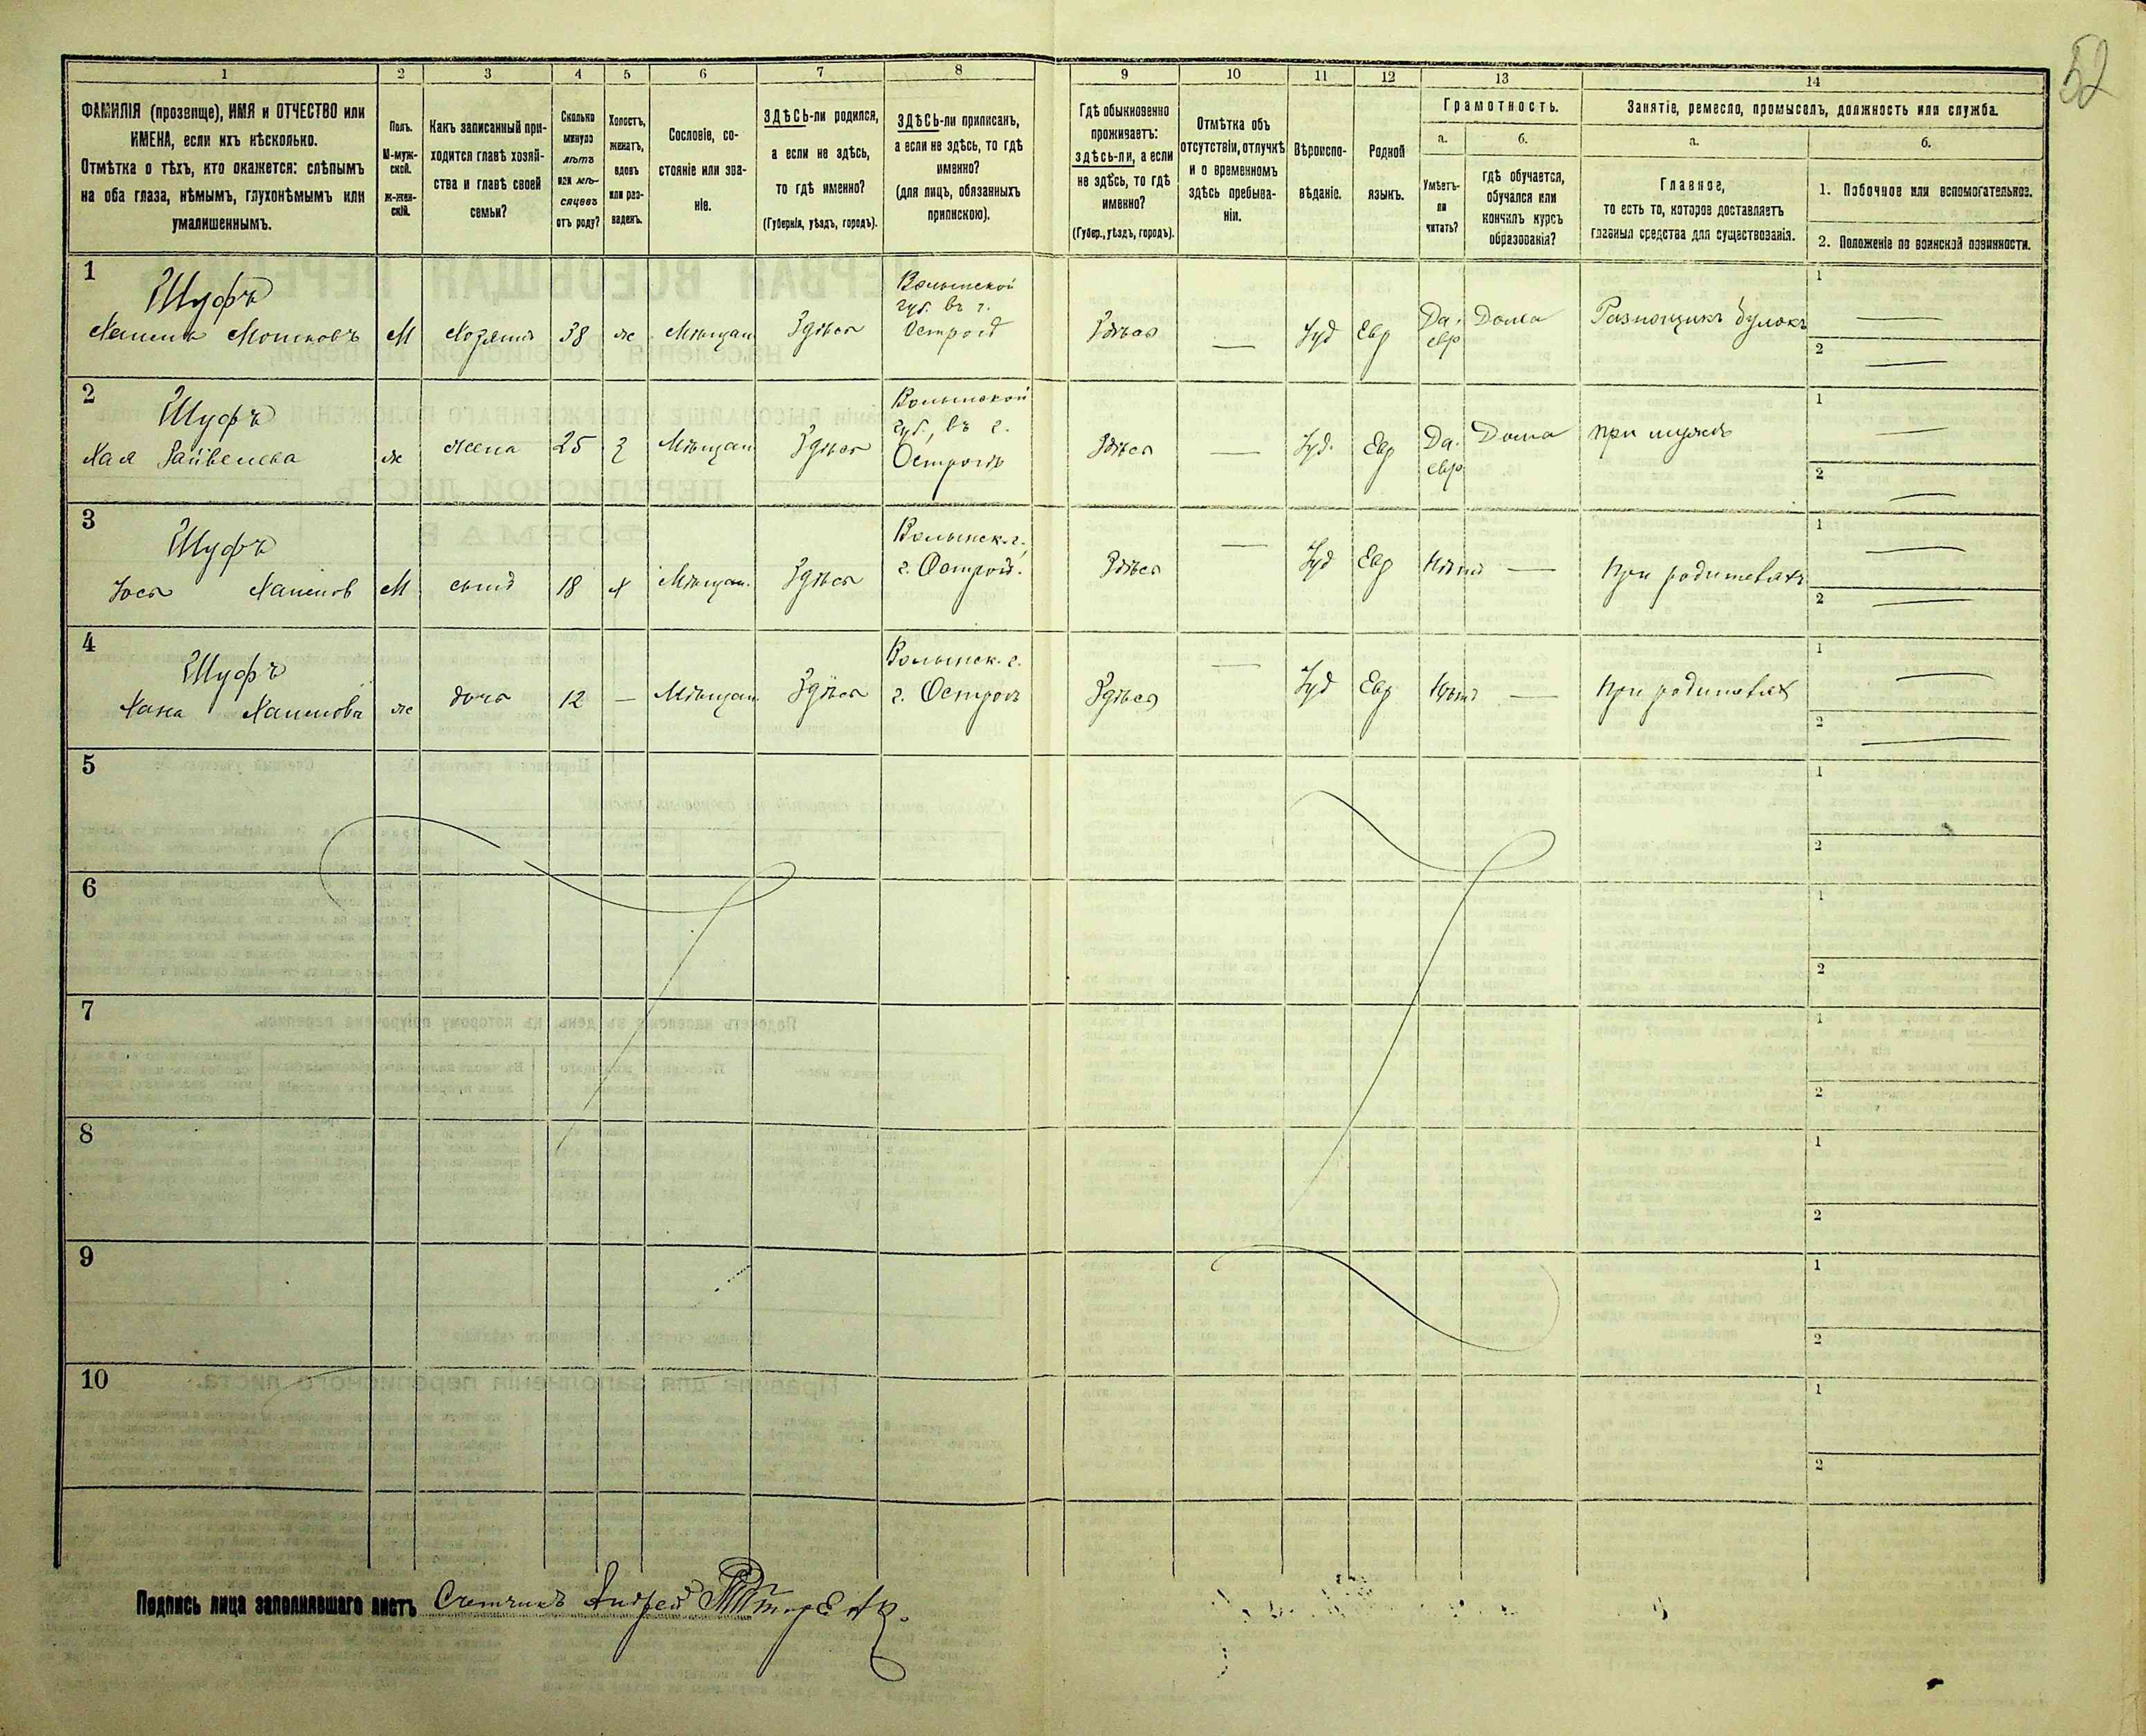 52
1 2 3 4 5 6 7 8 9 10 11 12 13 14
ФАМИЛІЯ (прозвище), ИМЯ и ОТЧЕСТВО или
ИМЕНА, если ихъ нѣсколько.
Отмѣтка о тѣхъ, кто окажется: слѣпымъ
на оба глаза, нѣмымъ, глухонѣмымъ или
умалишеннымъ.
Полъ.
М-муж-
ской.
ж-жен-
скій.
Какъ записанный при-
ходится главѣ хозяй-
ства и главѣ своей
семьи?
Сколько
минуло
лѣтъ
или мѣ-
сяцевъ
отъ роду?
Холостъ,
женатъ,
вдовъ
или раз-
веденъ.
Сословіе, со-
стояніе или зва-
ніе.
ЗДѢСЬ-ли родился,
а если не здѣсь,
то гдѣ именно?
(Губернія, уѣздъ, городъ).
ЗДѢСЬ-ли приписанъ,
а если не здѣсь, то гдѣ
именно?
(для лицъ, обязанныхъ
припискою).
Гдѣ обыкновенно
проживаетъ:
здѣсь-ли, а если
не здѣсь, то гдѣ
именно?
(Губер., уѣздъ, городъ).
Отмѣтка объ
отсутствіи, отлучкѣ
и о временномъ
здѣсь пребыва-
ніи.
Вѣроиспо-
вѣданіе.
Родной
языкъ.
Грамотность.
а.
Умѣетъ-
ли
читать?
б.
гдѣ обучается,
обучался или
кончилъ курсъ
образованія?
Занятіе, ремесло, промыселъ, должность или служба.
а.
Главное,
то есть то, которое доставляетъ
главныя средства для существованія.
б.
1. Побочное или вспомогательное.
2. Положеніе по воинской повинности.
1
Шуфъ
Хаимъ Мошковъ М Хозяинъ 38 ж Мѣщан Здѣсь
Волынской
губ. въ г.
Острогѣ
Здѣсь — Іуд Евр Да. Дома Разнощикъ булокъ
евр
1 —
2 —
2
Шуфъ
Хая ж жена 25 з Мѣщан Здѣсь
Волынской
губ., въ г.
Острогѣ
Здѣсь — Іуд. Евр Да. Дома при мужѣ
евр
1 —
2 —
3
Шуфъ
Іось Хаимов М сынъ 18 х Мѣщан. Здѣсь
Волынск. г.,
г. Острогъ.
Здѣсь — Іуд Евр Нѣтъ — При родителяхъ
1 —
2 —
4
Шуфъ
Хана Хаимова ж дочь 12 — Мѣщан Здѣсь
Волынск. г.
г. Острогъ
Здѣсь — Іуд Евр Нѣтъ — При родителях
1 —
2 —
5
1
2
6
1
2
7
1
2
8
1
2
9
1
2
10
1
2
Подпись лица заполнившаго листъ Счетчикъ Андрей